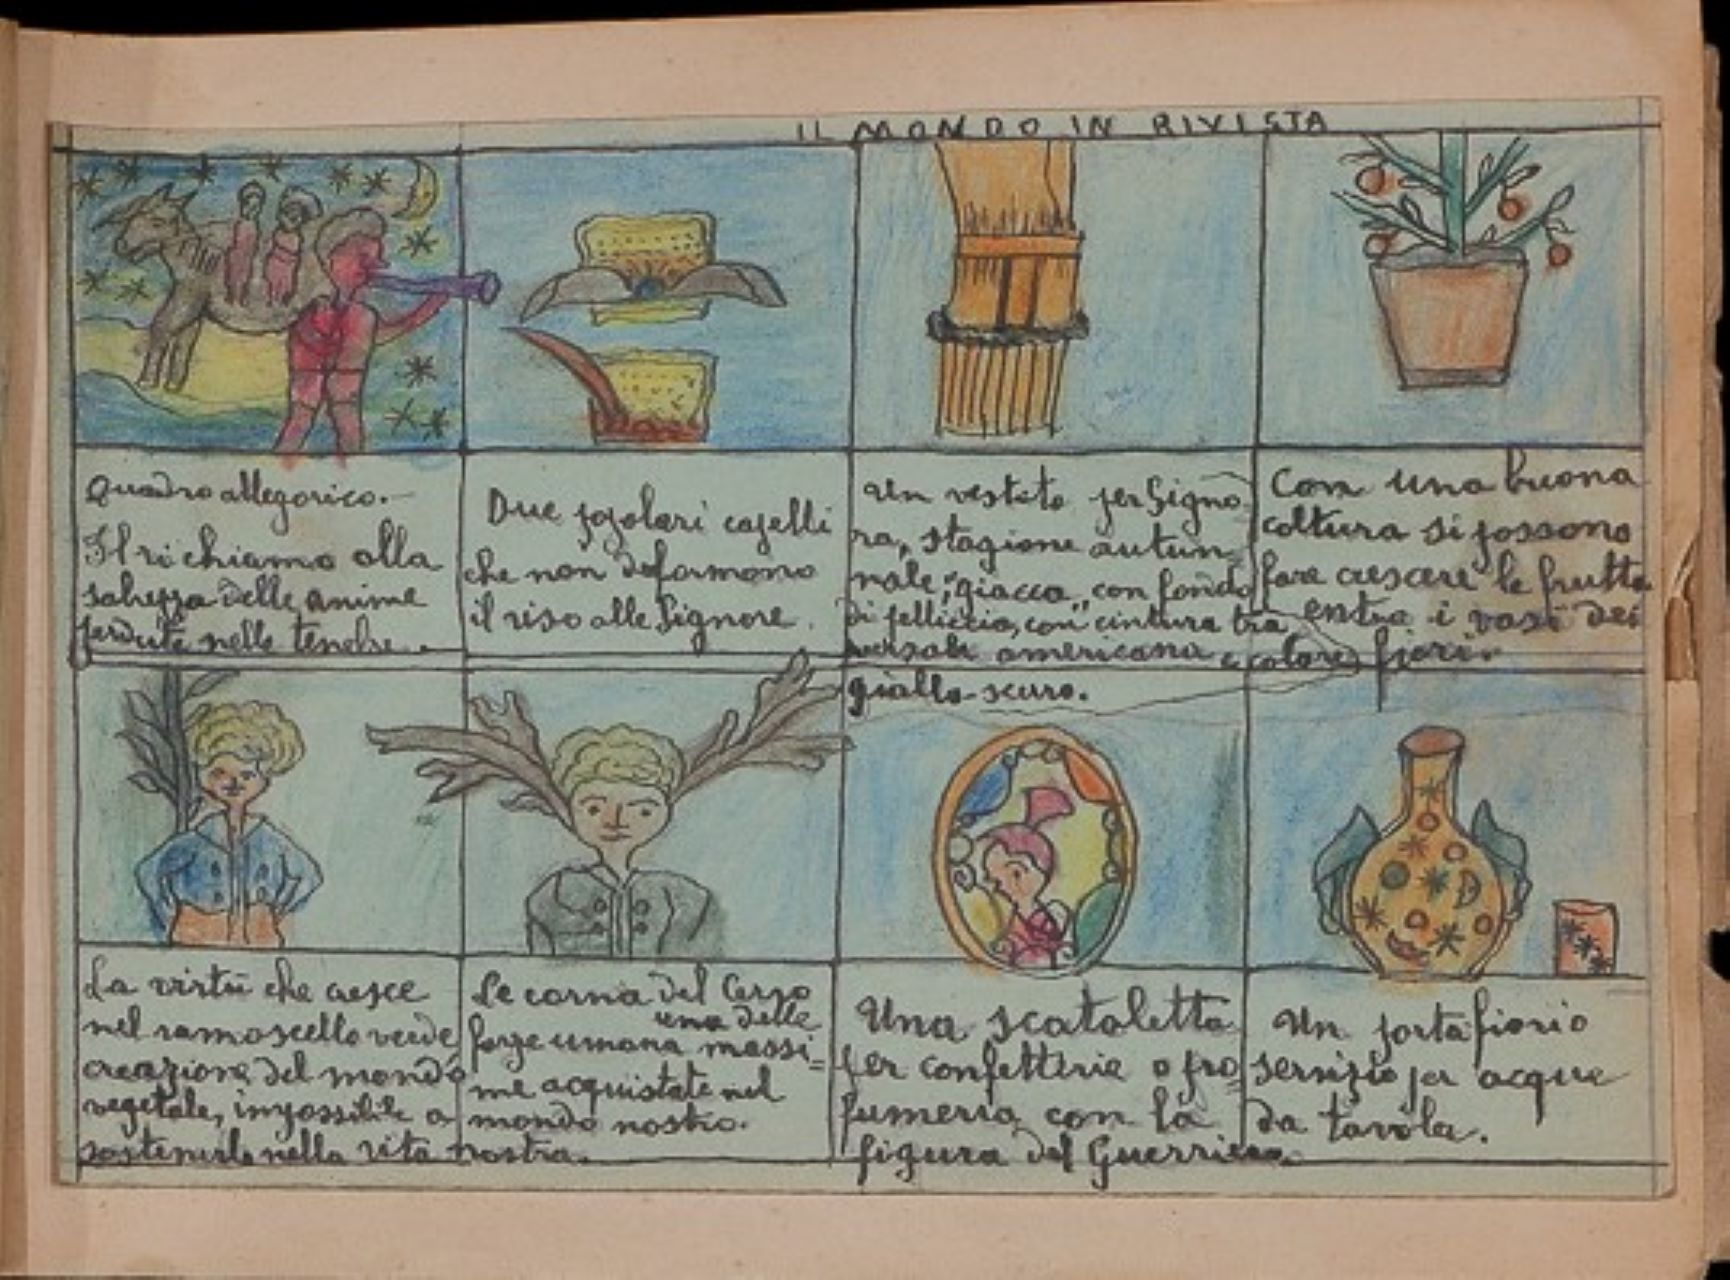 IL MONDO IN RIVISTA
Quadro allegorico.-
Il richiamo alla
salvezza delle anime
perdute nelle tenebre.
Due popolari capelli
che non deformono
il viso alle Signore.
Un vestito per Signo-
ra, stagione autun-
nale, "giacca" con fondo
di pelliccia, con cintura tra
versale americana e colore
giallo scuro.
Con una buona
coltura si possono
fare crescere le frutta
entro i vasi dei
fiori.
La virtù che cresce
nel ramoscello verde
creazione del mondo
vegetale, impossibile a
sostenerla nella vita nostra.
Le corna del Cervo
una delle
forze umana massi=
me acquistate nel
mondo nostro.
Una scatoletta
per confetterie o pro=
fumeria con la
figura del Guerriero.
Un porta fiori o
servizio per acque
da tavola.